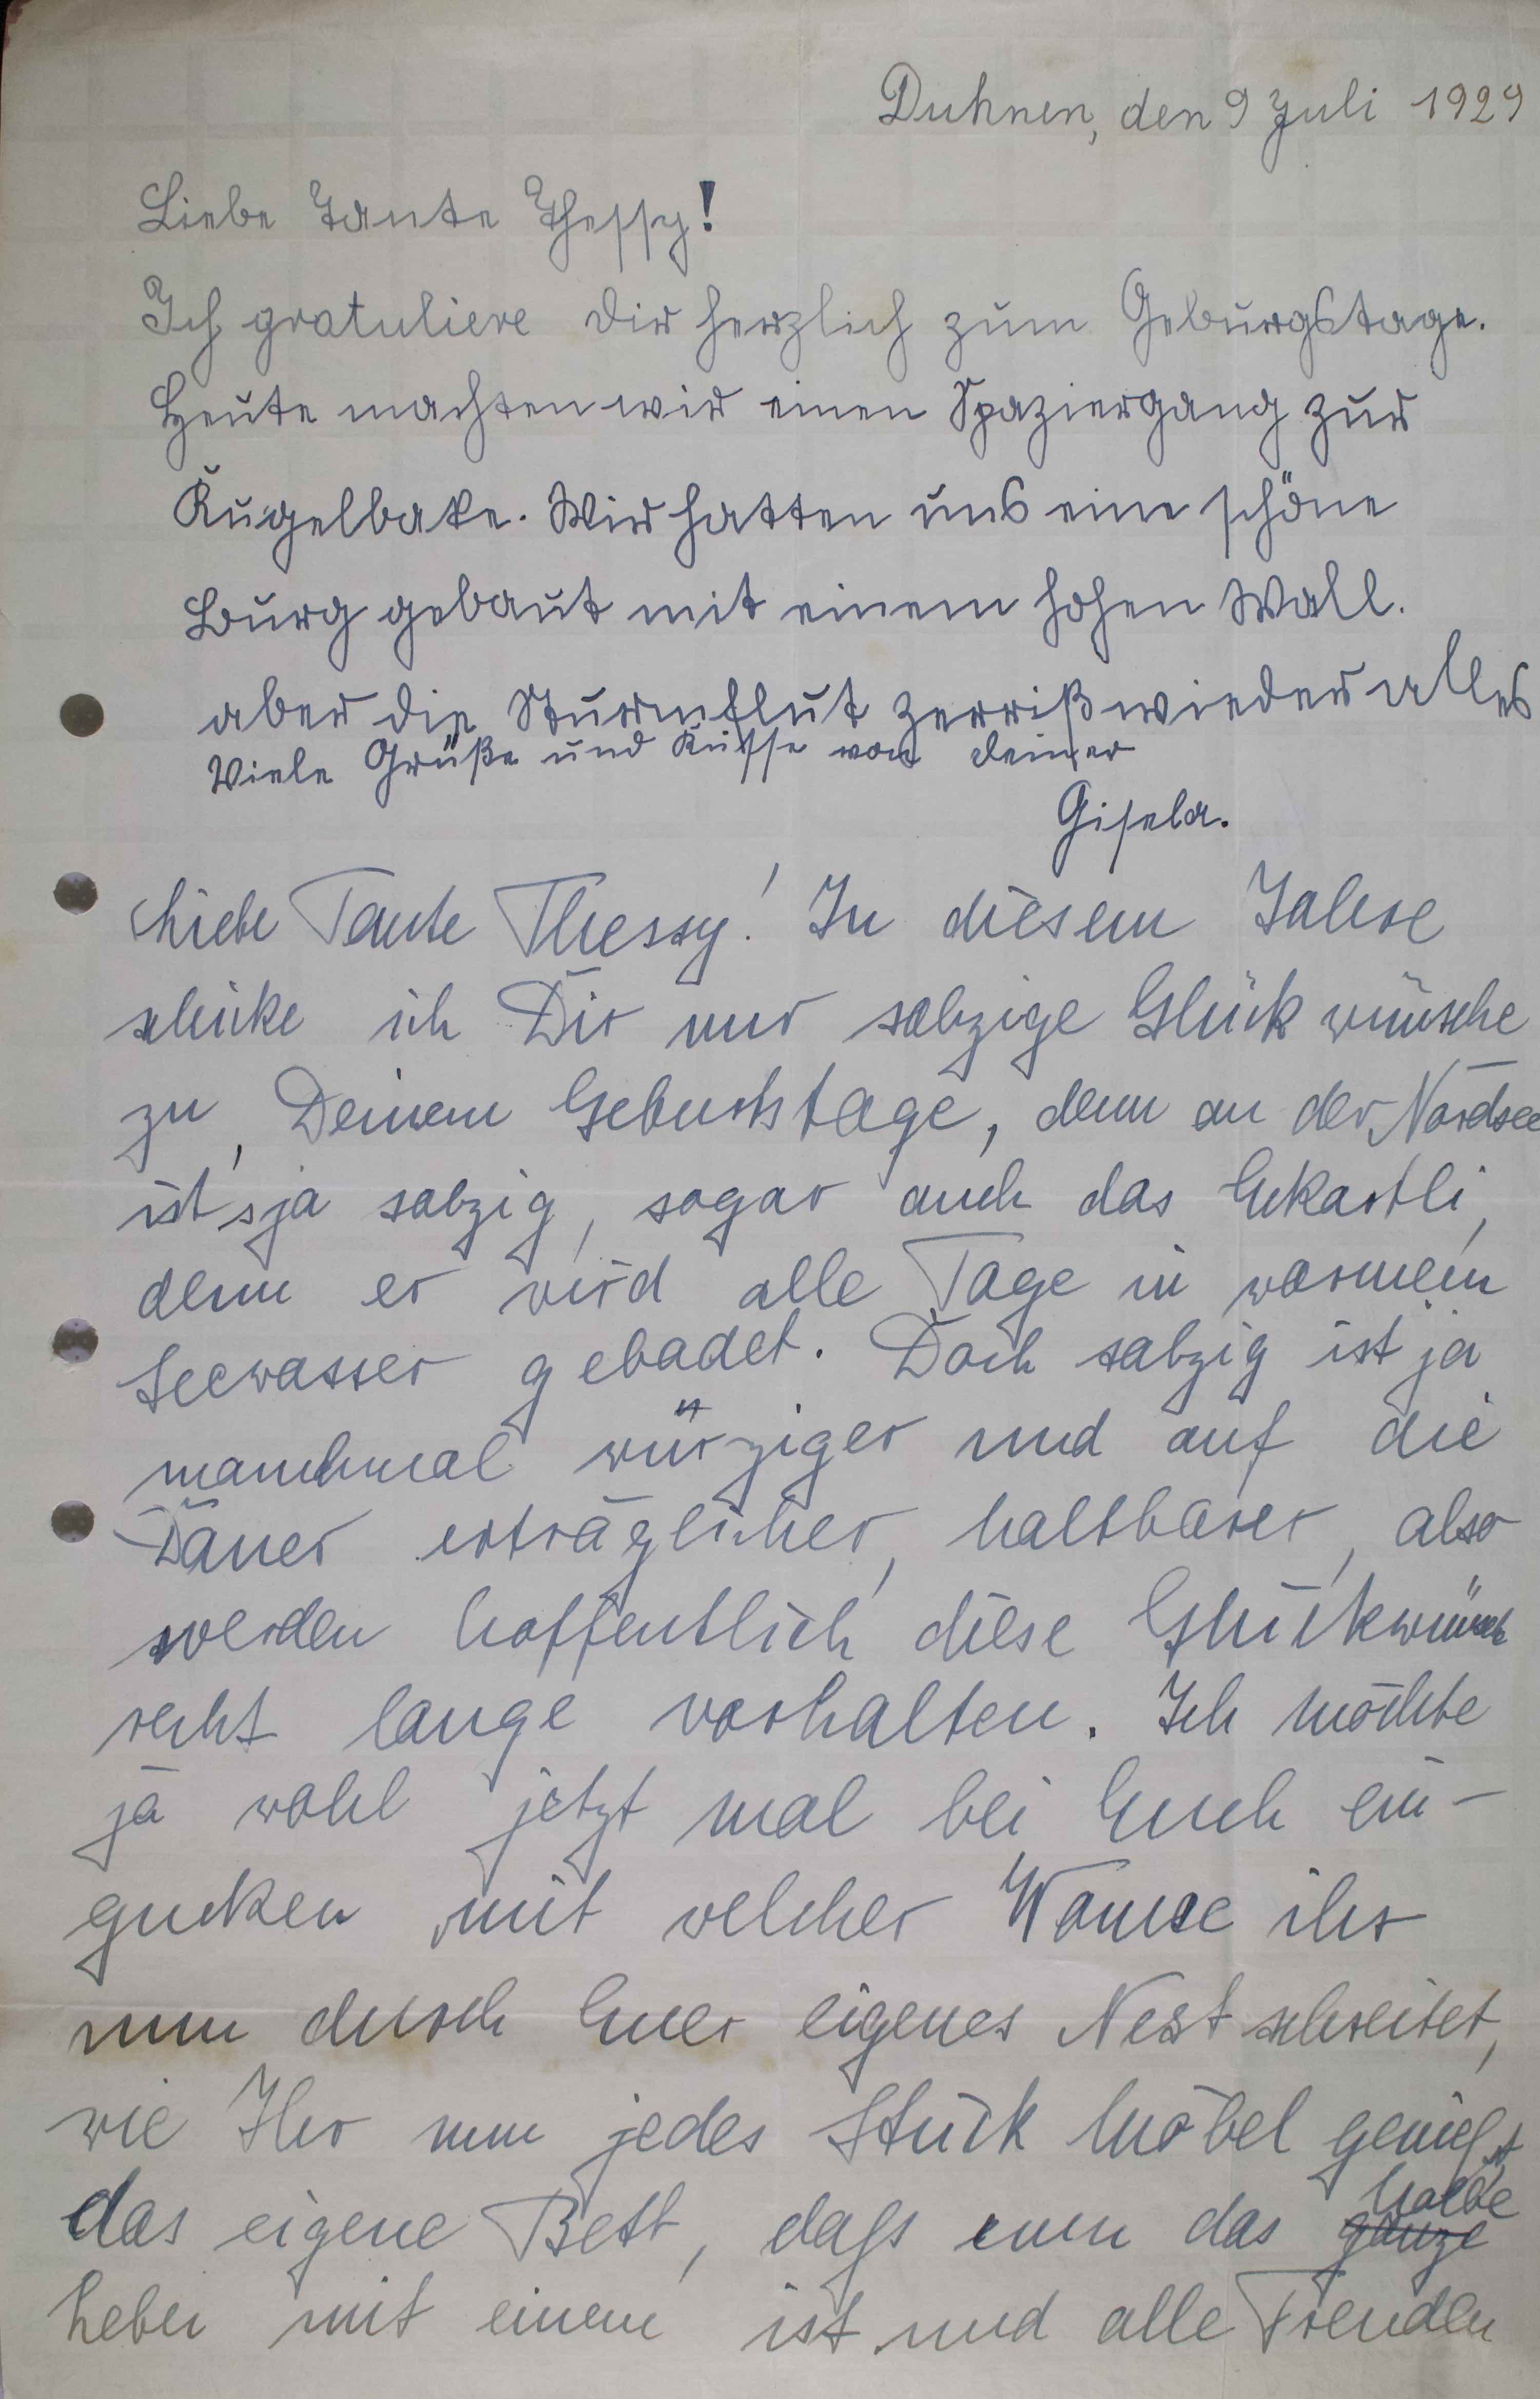 Duhnen, den 9 Juli 1929
Liebe Tante Thessy!
Ich gratuliere dir herzlich zum Geburgstage.
Heute machten wir einen Spaziergang zur
Kugelbake. Wir hatten uns eine schöne
Burg gebaut mit einem hohen Wall.
aber die Sturmflut zerriß wieder alles
Viele Grüße und Küsse von deiner
Gisela.
Liebe Tante Thessy! In diesem Jahre
schicke ich Dir nur salzige Glückwünsche
zu Deinem Geburtstage, denn an der Nordsee
ist's ja salzig, sogar auch das
denn er wird alle Tage in warmem
Seewasser gebadet. Doch salzig ist ja
manchmal würziger und auf die
Dauer erträglicher, haltbarer, also
werden hoffentlich diese Glückwünsche
recht lange vorhalten. Ich möchte
ja wohl jetzt mal bei Euch ein-
gucken mit welcher Wonne ihr
nun durch Euer eigenes Nest schreitet,
wie Ihr nun jedes Stück Möbel genießt,
das eigene Bett, dass nun das ganze halbe
Leben mit einem ist und alle Freuden